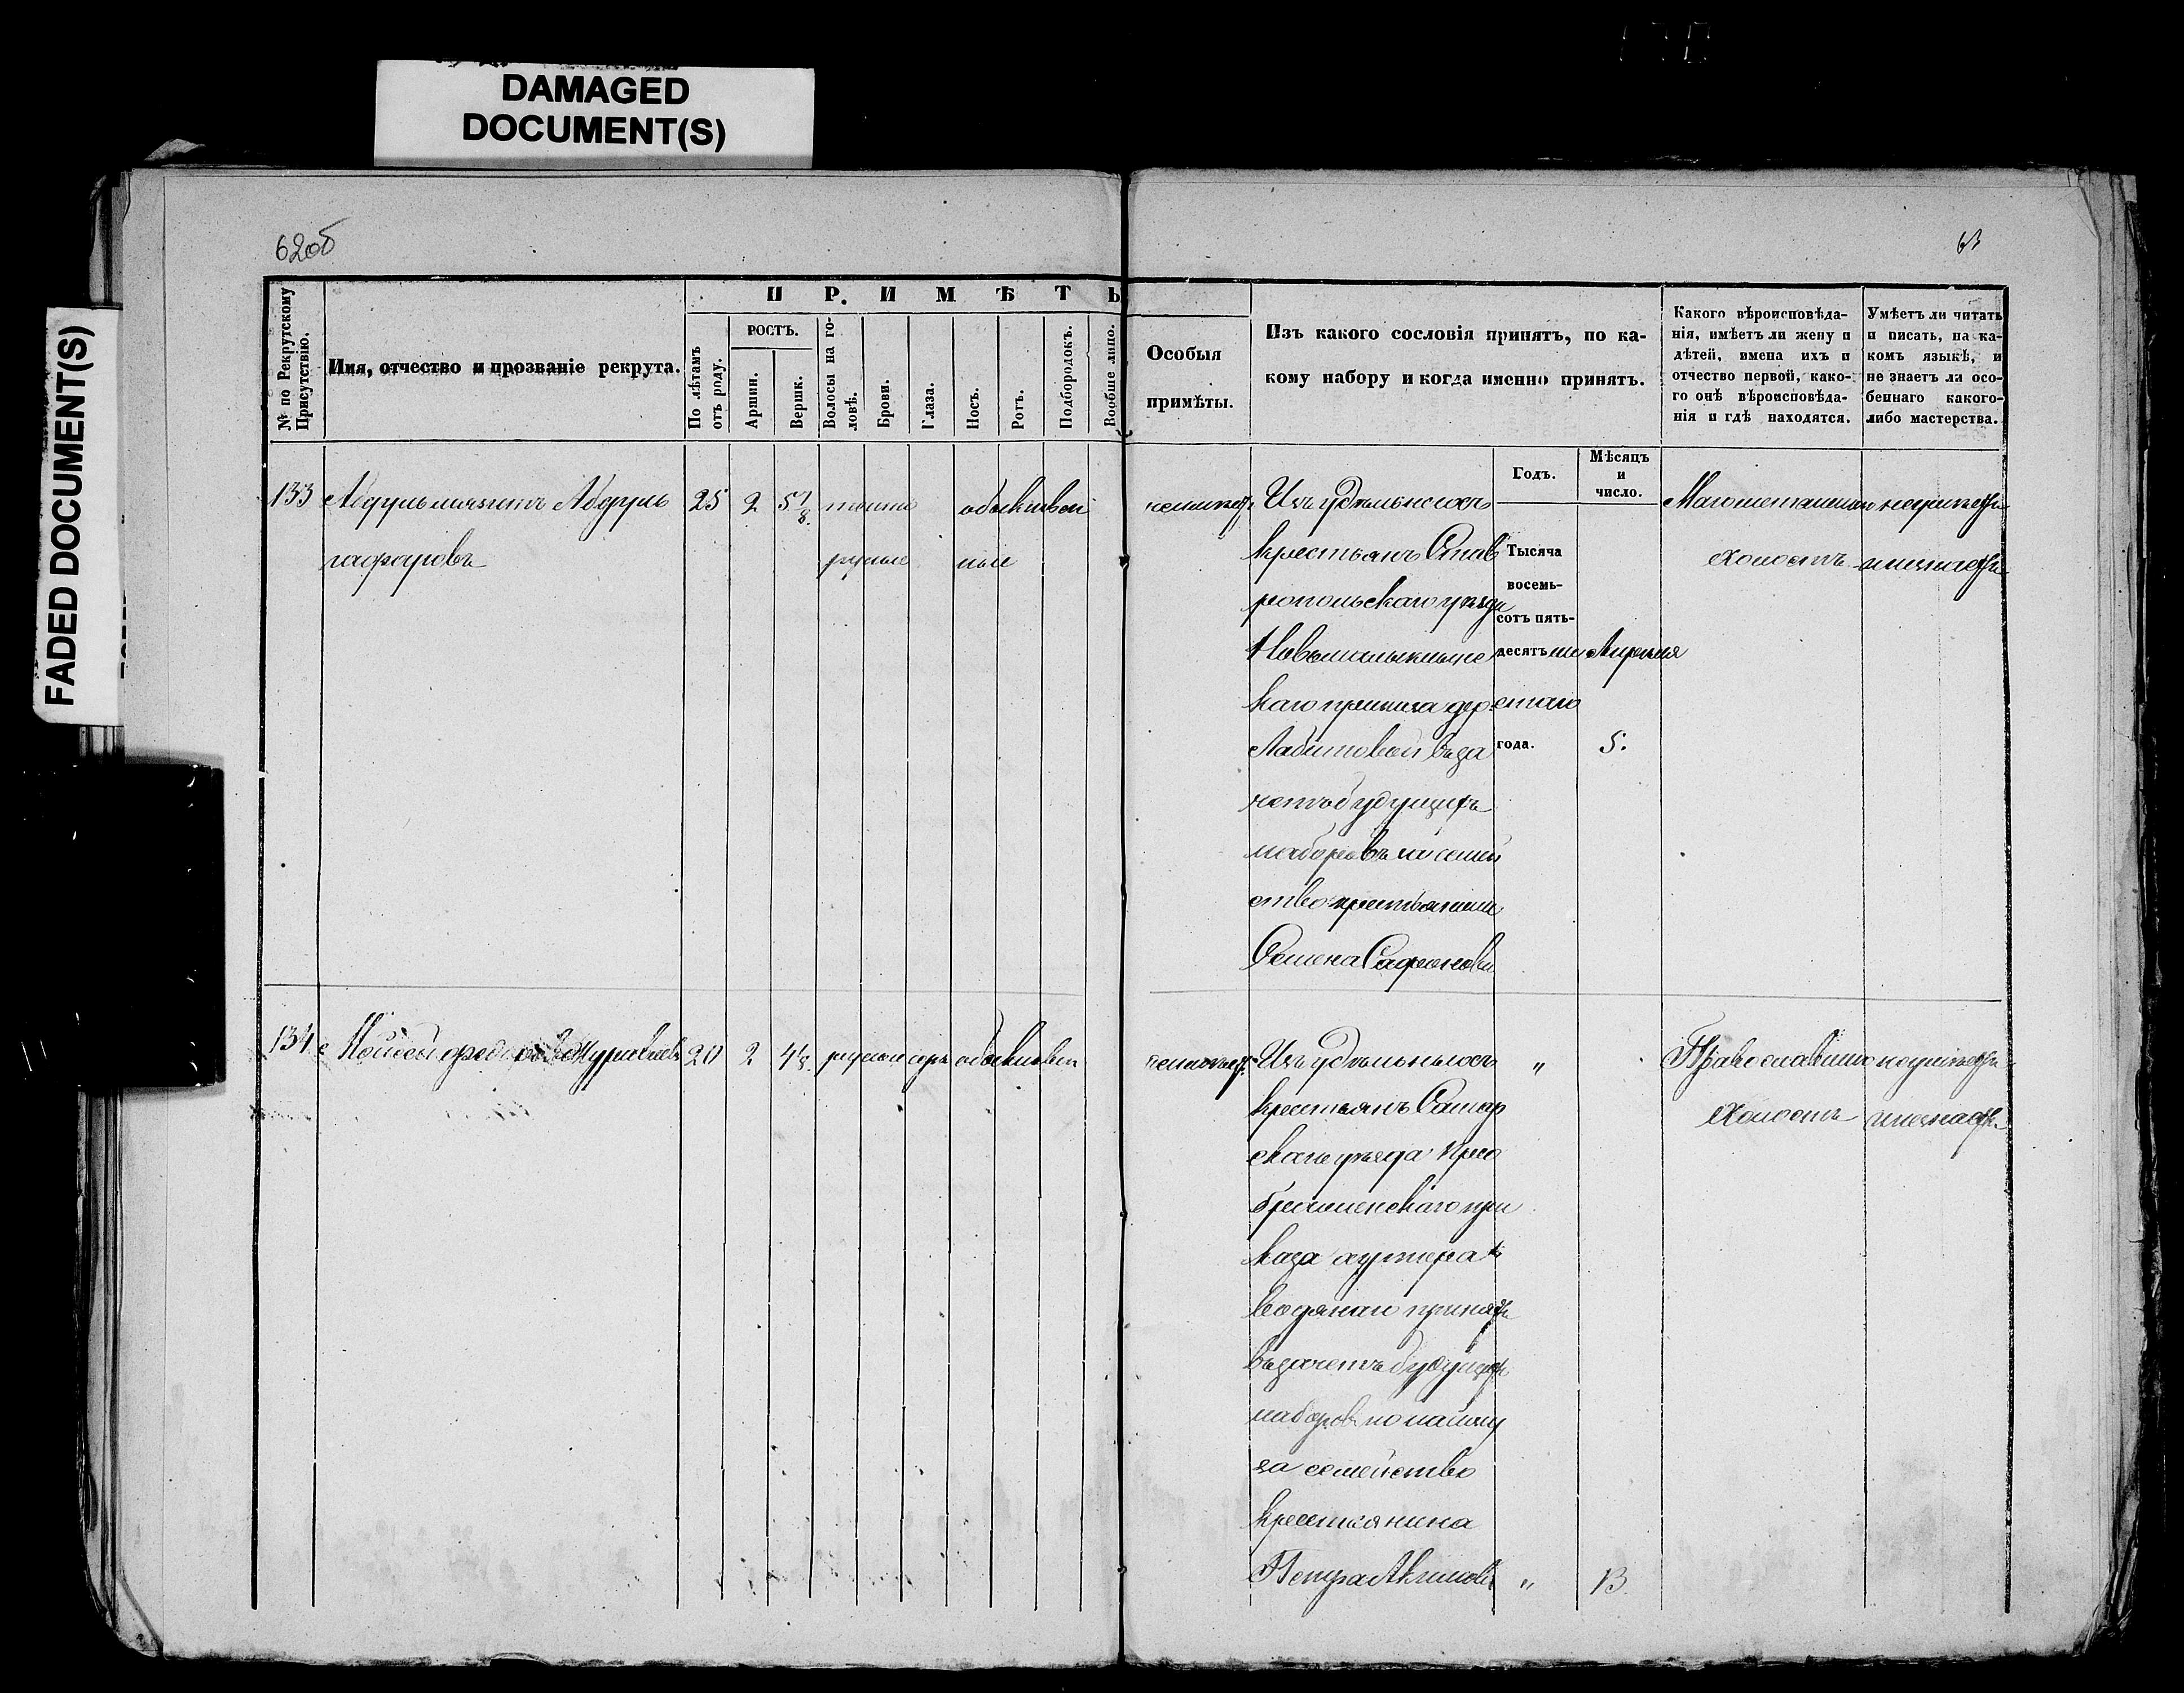 DAMAGED
DOCUMENT(S)
FADED DOCUMENT(S)
62об
63
№ по Рекрутскому Присутствію.
Имя, отчество и прозваніе рекрута.
П Р И М Ѣ Т Ы
По лѣтамъ отъ роду.
РОСТЪ.
Аршин.
Вершк.
Волосы на го-
ловѣ.
Брови.
Глаза.
Носъ.
Ротъ.
Подбородокъ.
Вообще лицо.
Особыя
примѣты.
Изъ какого сословія принятъ, по ка-
кому набору и когда именно принятъ.
Годъ.
Мѣсяцъ
и
число.
Какого вѣроисповѣда-
нія, имѣетъ ли жену и
дѣтей, имена ихъ и
отчество первой, како-
го онѣ вѣроисповѣда-
нія и гдѣ находятся.
Умѣетъ ли читать
и писать, на ка-
комъ языкѣ, и
не знаетъ ли осо-
беннаго какого-
либо мастерства.
133 Абдульмязитъ Абдуль 25 2 5 1/8 темно обыкновен
гафуровъ русые ные
неимѣетъ
Изъ удѣльныхъ
крестьянъ Став
ропольскаго уѣзда
каго приказа дер.
Лабитовой въ за
четъ будущихъ
наборовъ
ство крестьянина
Семена Сафонова
Тысяча
восемь-
сотъ пять-
десять ше
стаго
года.
Апрѣля
5.
Магометанскаго
холостъ
неумѣетъ
и незнаетъ
134 Мойсей Федоровъ Журавлевъ 20 2 4 1/8 русые сер обыкновен
неимѣетъ
Изъ удѣльныхъ
крестьянъ Самар
скаго уѣзда Прео
браженскаго при
каза хутора
водянаи принятъ
въ зачетъ будущихъ
наборовъ по найму
за семейство
крестьянина
Петра Акимова
"
" 13.
Православнаго
холостъ
неумѣетъ
и незнаетъ